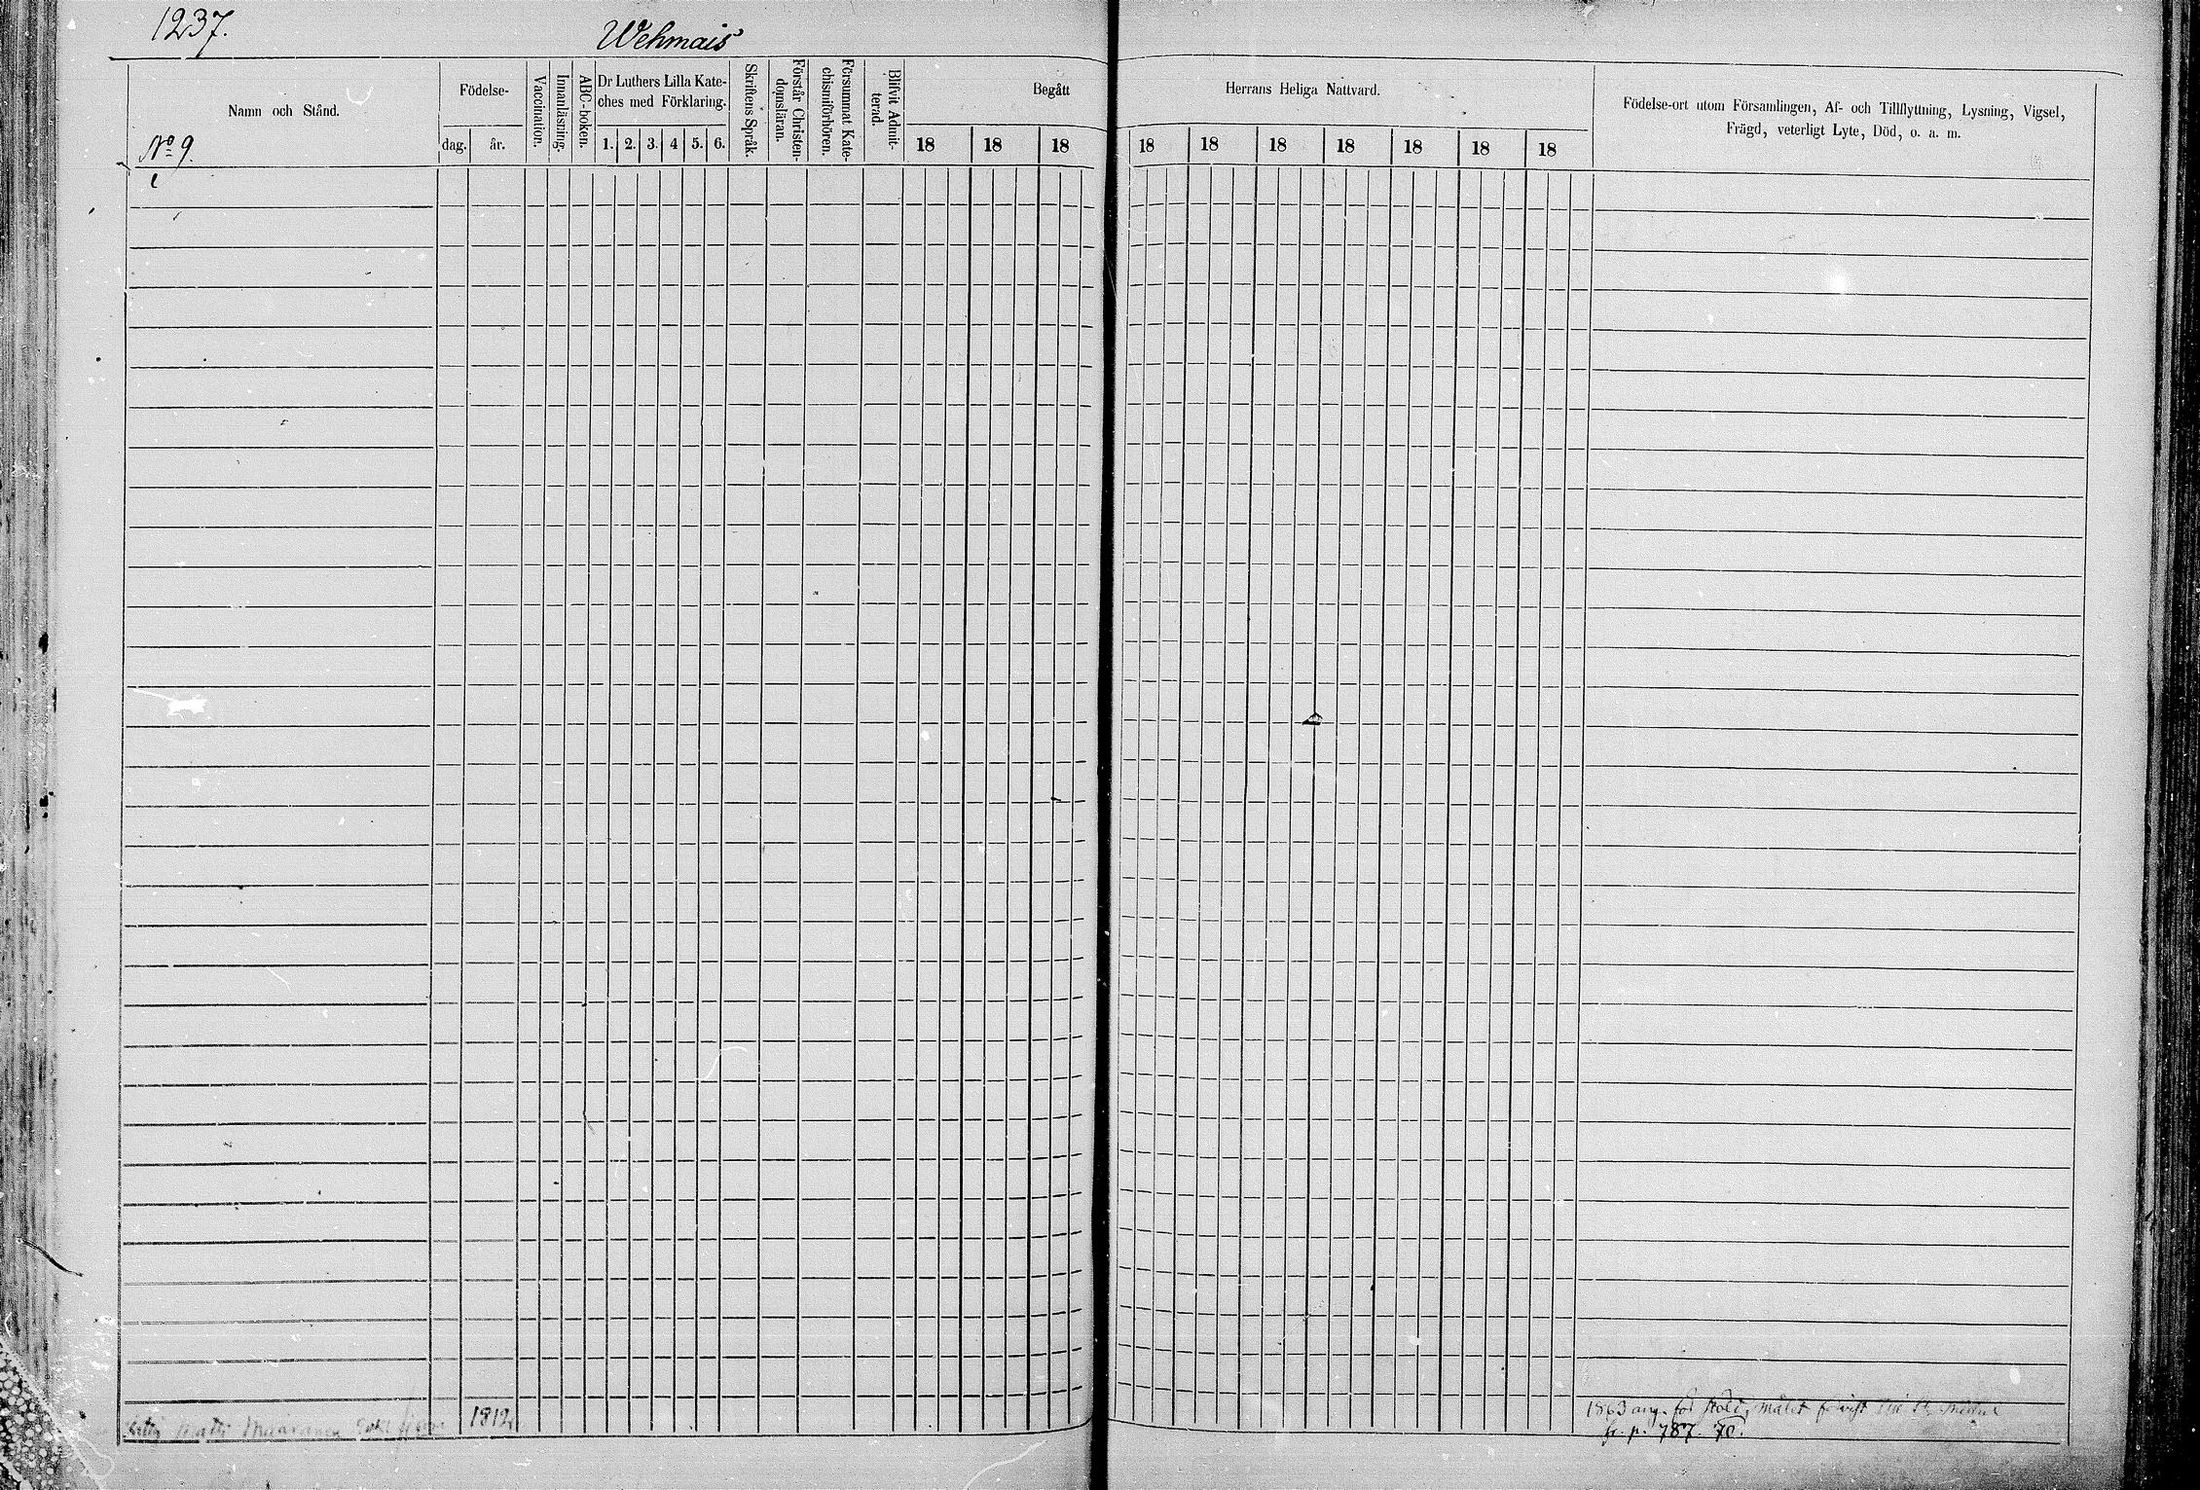 1237.
Wehmais
Namn och Stånd.
No 9.
Födelse-
dag.
år.
Vaccination.
Innanläsning.
ABC-boken.
Dr Luthers Lilla Kate-
ches med Förklaring.
1. 2. 3. 4 5. 6.
Skriftens Språk.
Förstår Christen-
domsläran.
Försummat Kate-
chismiförhören.
Blifvit Admit-
terad.
Begått
18 18 18
Herrans Heliga Nattvard.
18 18 18 18 18 18 18
Födelse-ort utom Församlingen, Af- och Tillflyttning, Lysning, Vigsel,
Frägd, veterligt Lyte, Död, o. a. m.
Matts 1812
1863 ang. för
fr. p. 787. 70.